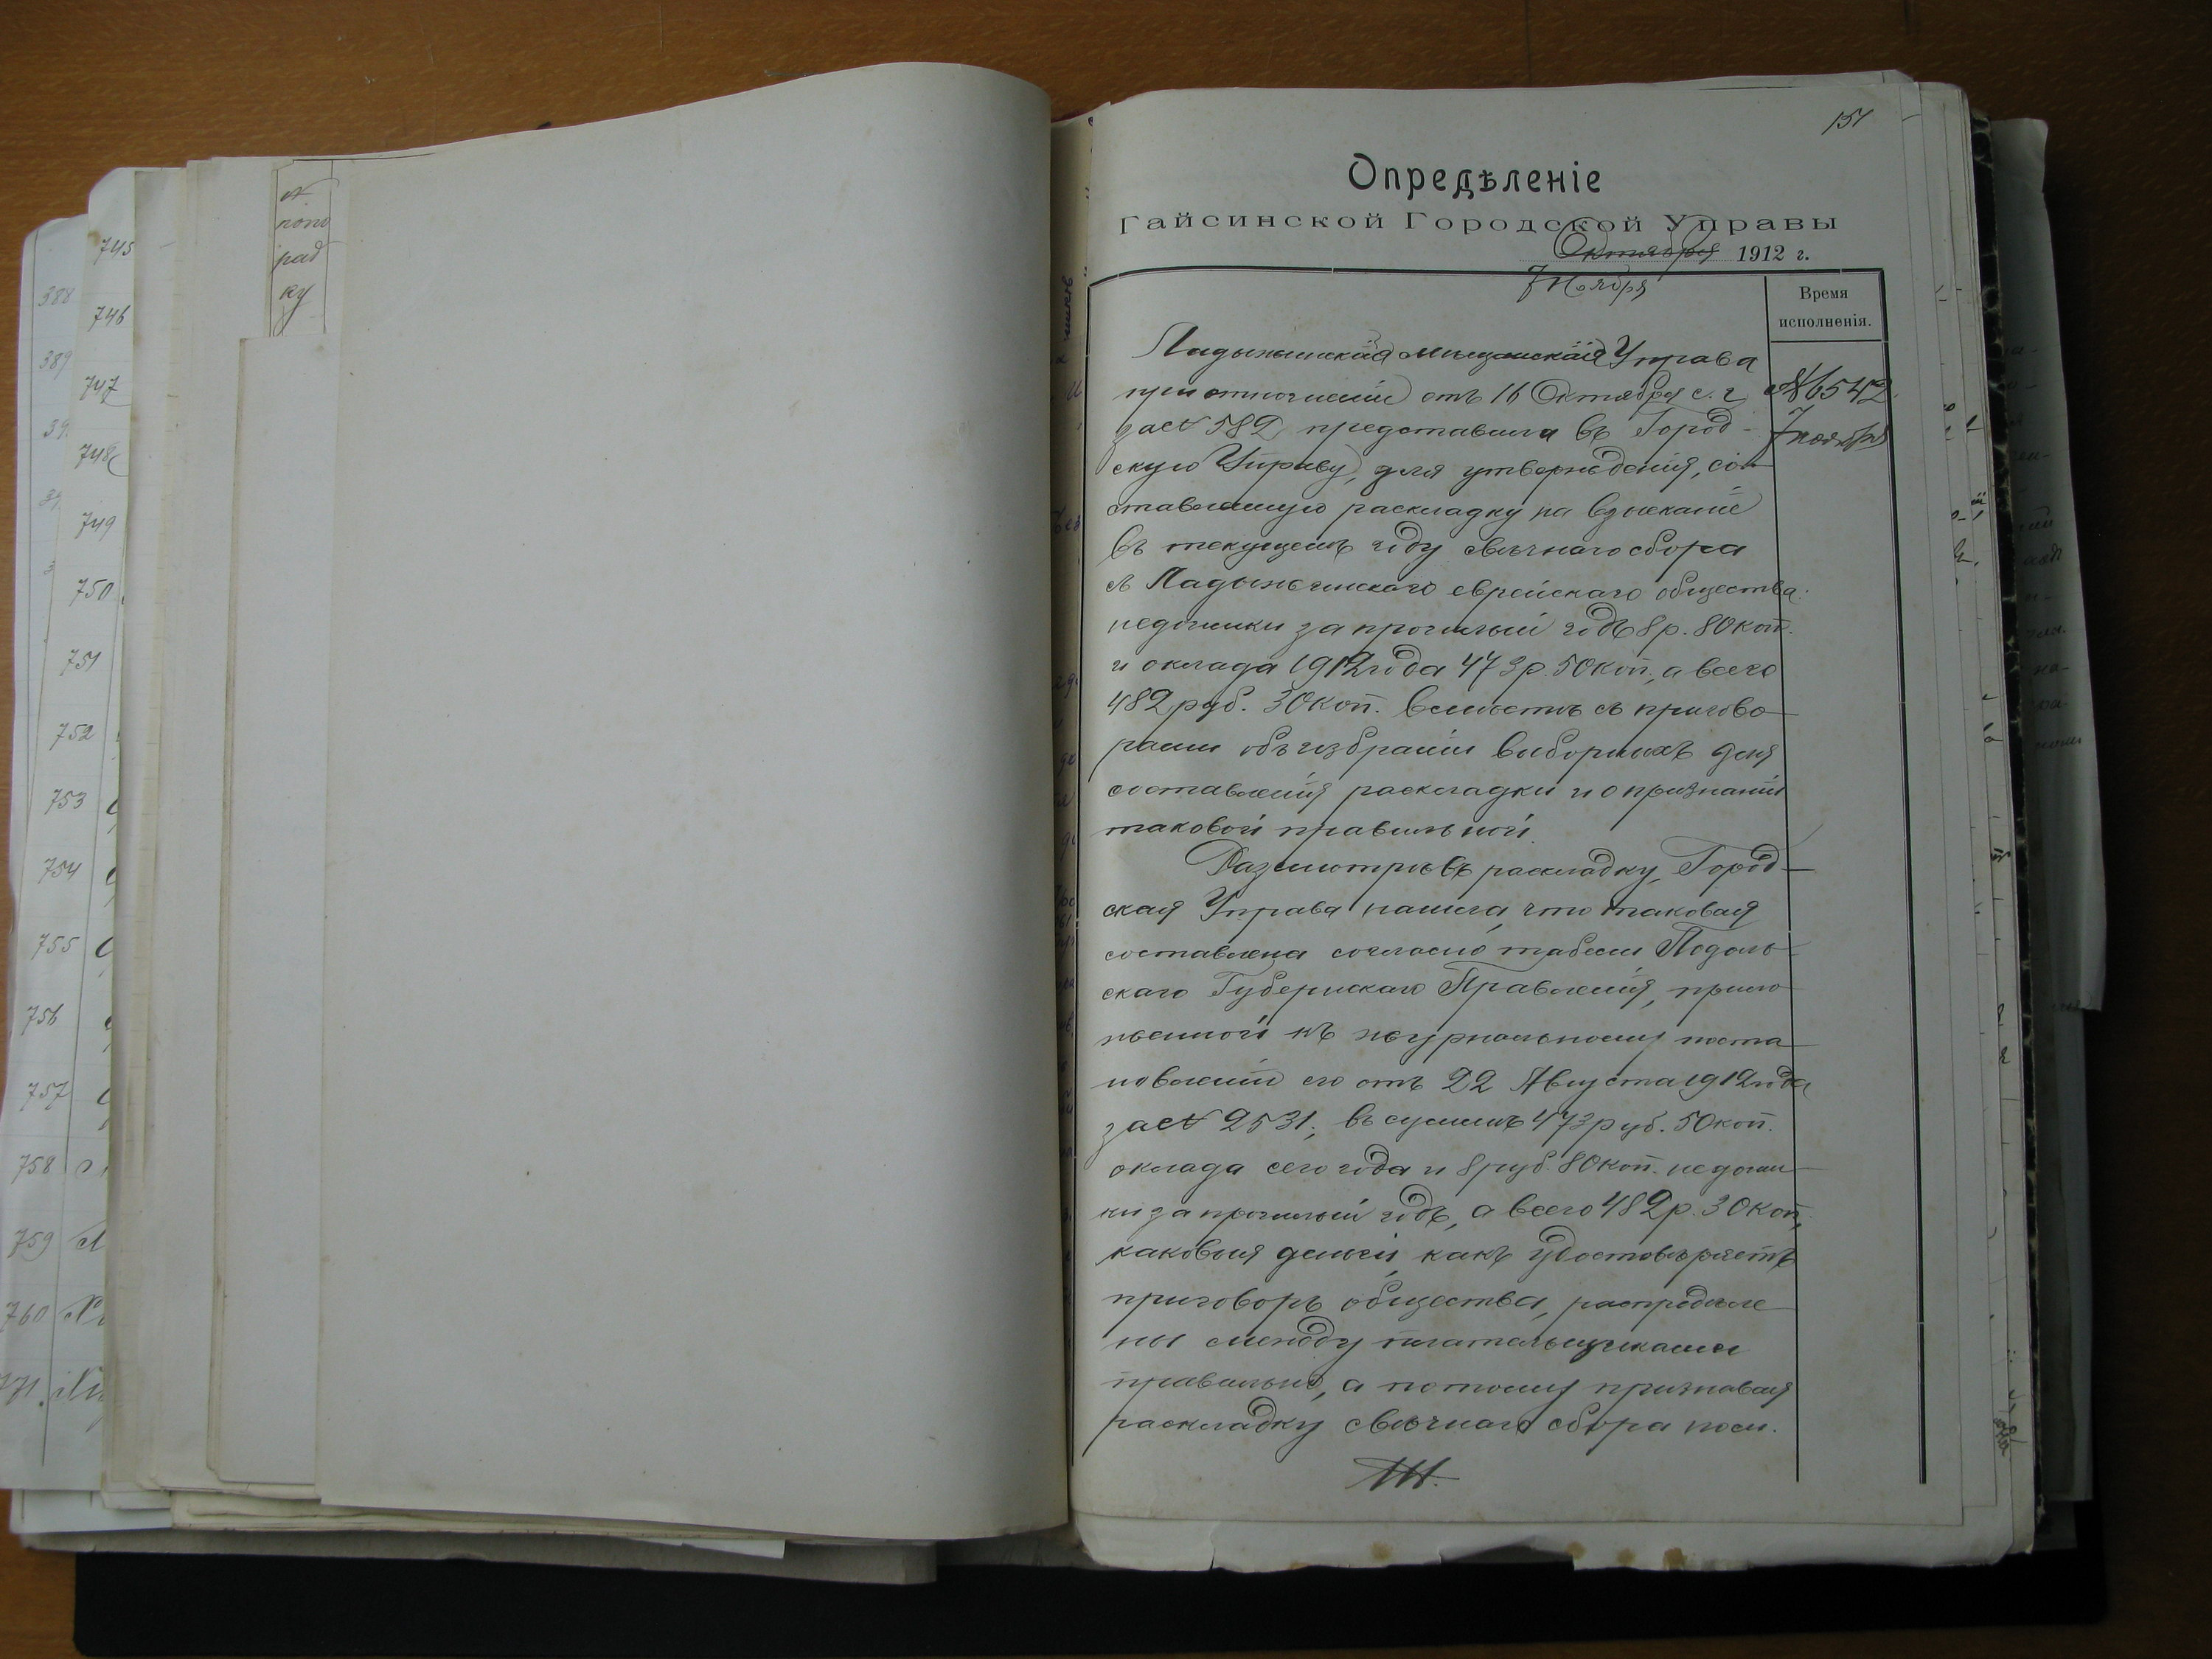 №
поло
рад
ку
745
388
746
389
747
39
748
749
750
751
752
753
754
755
756
757
758
759
760
151
Опредѣленіе
Гайсинской Городской Управы
Октября 1912 г.
7 Ноября
Время
исполненія.
Ладыжинская мѣщанская Управа
при отношеніи отъ 16 Октября с. г.
№ 6542
за № 582, представила въ Город-
7 ноября
скую Управу, для утвержденія, со-
ставленную раскладку на взысканіе
въ текущемъ году свѣчнаго сбора
съ Ладыжинскаго еврейскаго общества:
недоимки за прошлый годъ 8 р. 80 коп.
и оклада 1912 года 473 р. 50 коп., а всего
482 руб. 30 коп. вмѣстѣ съ пригово-
рами объ избраніи выборныхъ для
составленія раскладки и о признаніи
таковой правильной.
Разсмотрѣвъ раскладку, Город-
ская Управа нашла, что таковая
составлена согласно табели Подоль-
скаго Губернскаго Правленія, прило-
женной къ журнальному поста-
новленію его отъ 22 Августа 1912 года
за № 2531, въ суммѣ 473 руб. 50 коп.
оклада сего года и 8 руб. 80 коп. недоим-
ки за прошлый годъ, а всего 482 р. 30 коп.,
каковыя деньги, какъ удостовѣряетъ
приговоръ общества, распредѣле-
ны между плательщиками
правильно, а потому признавая
раскладку свѣчнаго сбора